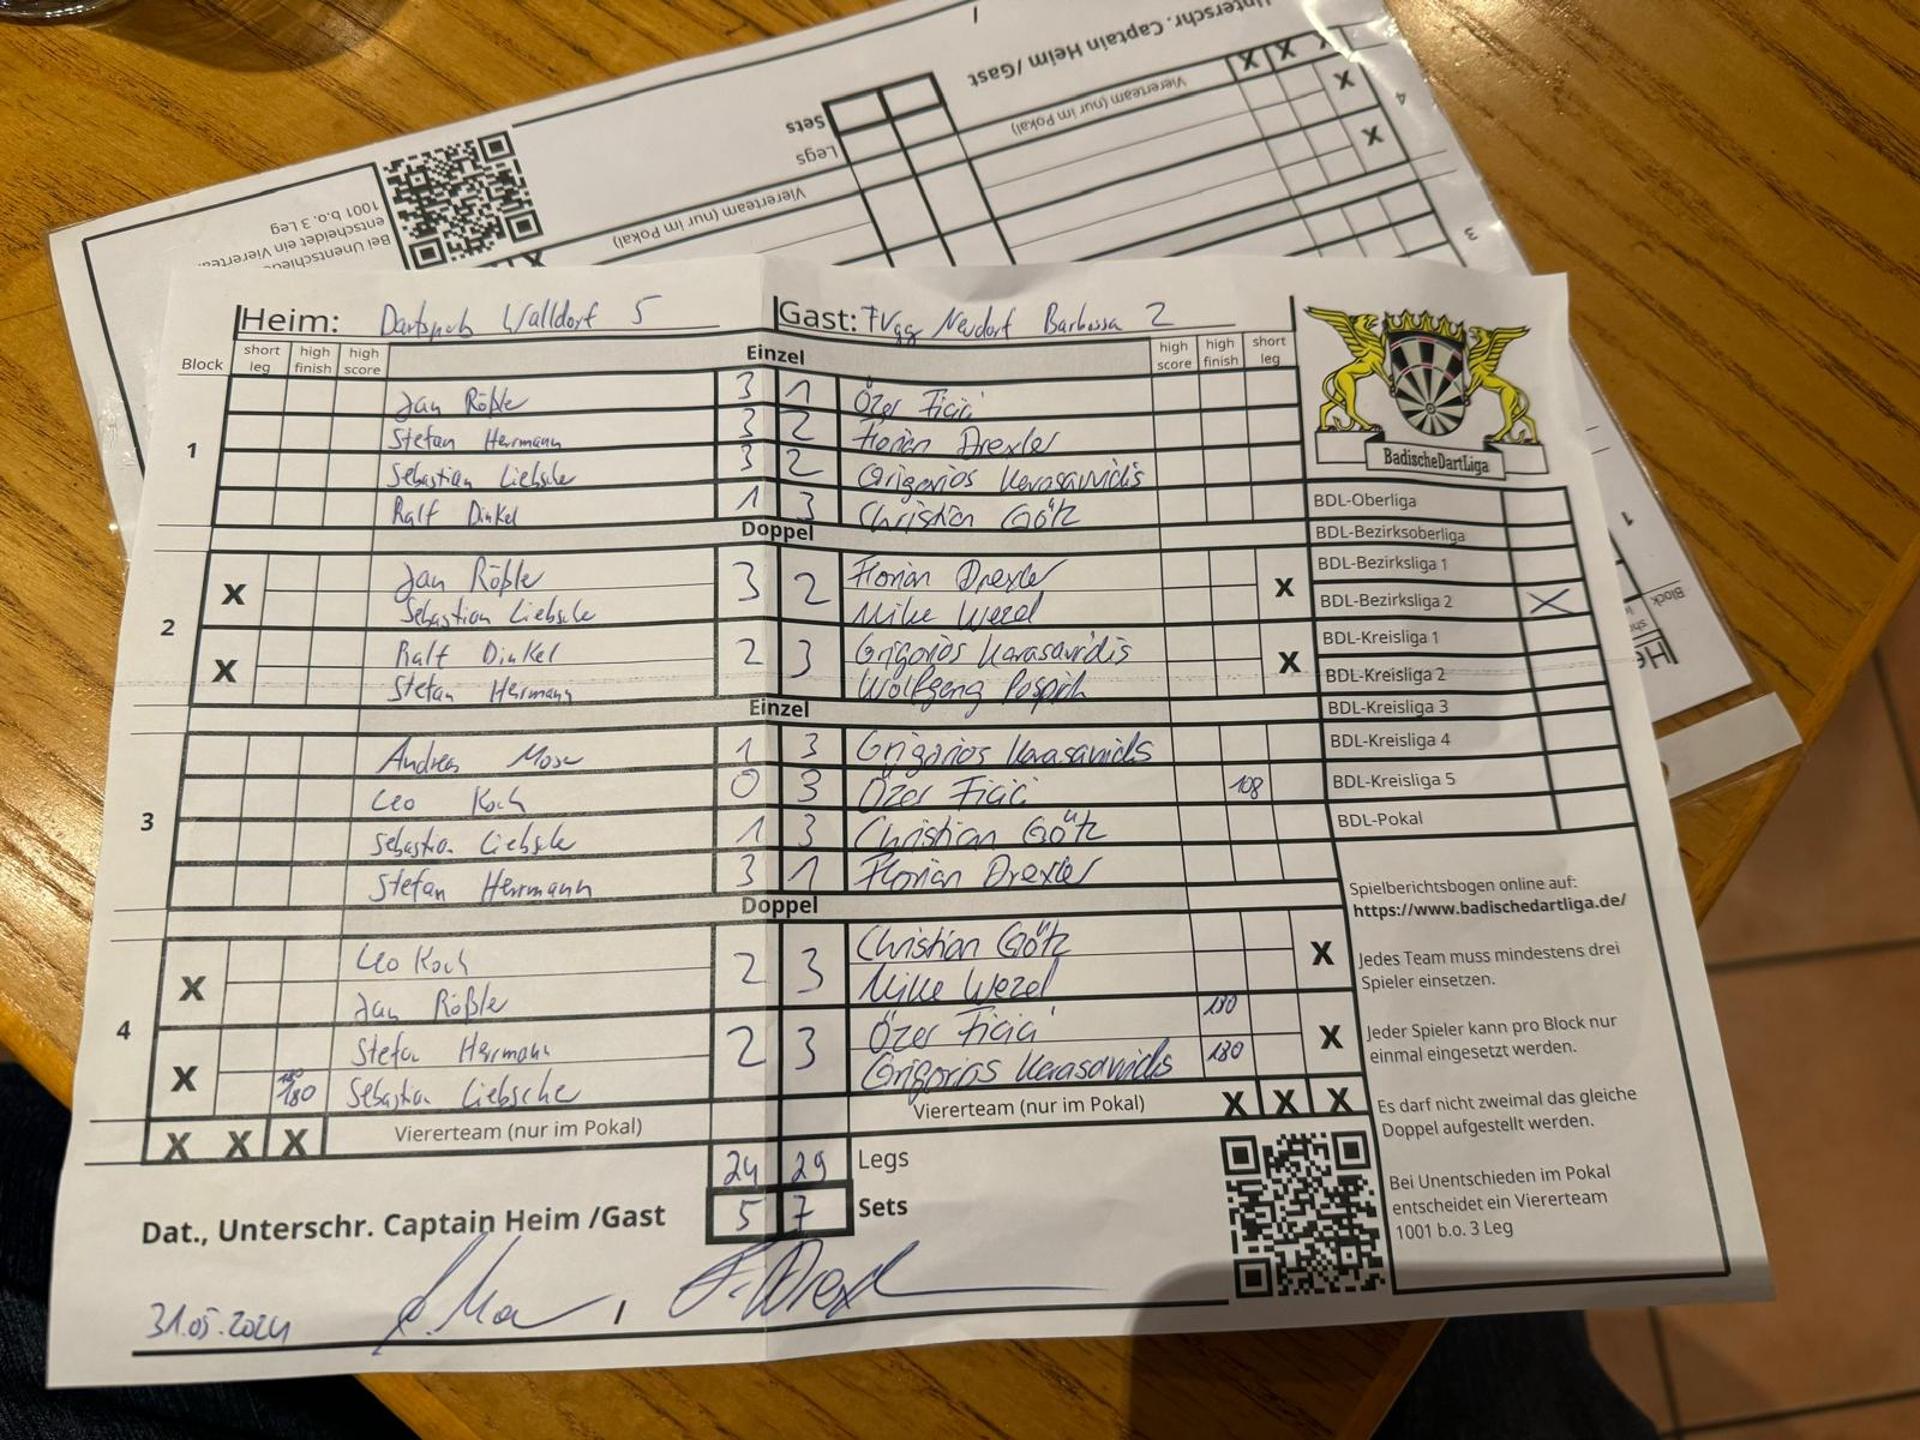 Unterschr. Captain Heim /Gast
Sets
Legs
Viererteam (nur im Pokal)
X X X
Viererteam (nur im Pokal)
4
X
X
3
Bei Unentschieden
entscheidet ein Vierertea
1001 b.o. 3 Leg
X
1
Block
Heim: Dartspub Walldorf 5 Gast: FVgg Neudorf Barbossa 2
Block short leg high finish high score Einzel high score high finish short leg
1
Jan Rößle 3 1 Özer Ficici
Stefan Herrmann 3 2 Florian Drexler
Sebastian Liebsche 3 2 Grigorios Karasavidis
Ralf Dinkel 1 3 Christian Götz
Doppel
2
X Jan Rößle 3 2 Florian Drexler X
Sebastian Liebsche Mike Wezel
X Ralf Dinkel 2 3 Grigorios Karasavidis X
Stefan Herrmann Wolfgang Pospich
Einzel
3
Andreas Moser 1 3 Grigorios Karasavidis
Leo Koch 0 3 Özer Ficici 108
Sebastian Liebsche 1 3 Christian Götz
Stefan Herrmann 3 1 Florian Drexler
Doppel
4
X Leo Koch 2 3 Christian Götz X
Jan Rößle Mike Wezel
X Stefan Herrmann 2 3 Özer Ficici 180 X
180 180 Sebastian Liebsche Grigorios Karasavidis 180
X X X Viererteam (nur im Pokal) Viererteam (nur im Pokal) X X X
24 29 Legs
5 7 Sets
Dat., Unterschr. Captain Heim /Gast
31.05.2024 / F. Drexl
BadischeDartLiga
BDL-Oberliga
BDL-Bezirksoberliga
BDL-Bezirksliga 1
BDL-Bezirksliga 2 X
BDL-Kreisliga 1
BDL-Kreisliga 2
BDL-Kreisliga 3
BDL-Kreisliga 4
BDL-Kreisliga 5
BDL-Pokal
Spielberichtsbogen online auf:
https://www.badischedartliga.de/
Jedes Team muss mindestens drei
Spieler einsetzen.
Jeder Spieler kann pro Block nur
einmal eingesetzt werden.
Es darf nicht zweimal das gleiche
Doppel aufgestellt werden.
Bei Unentschieden im Pokal
entscheidet ein Viererteam
1001 b.o. 3 Leg